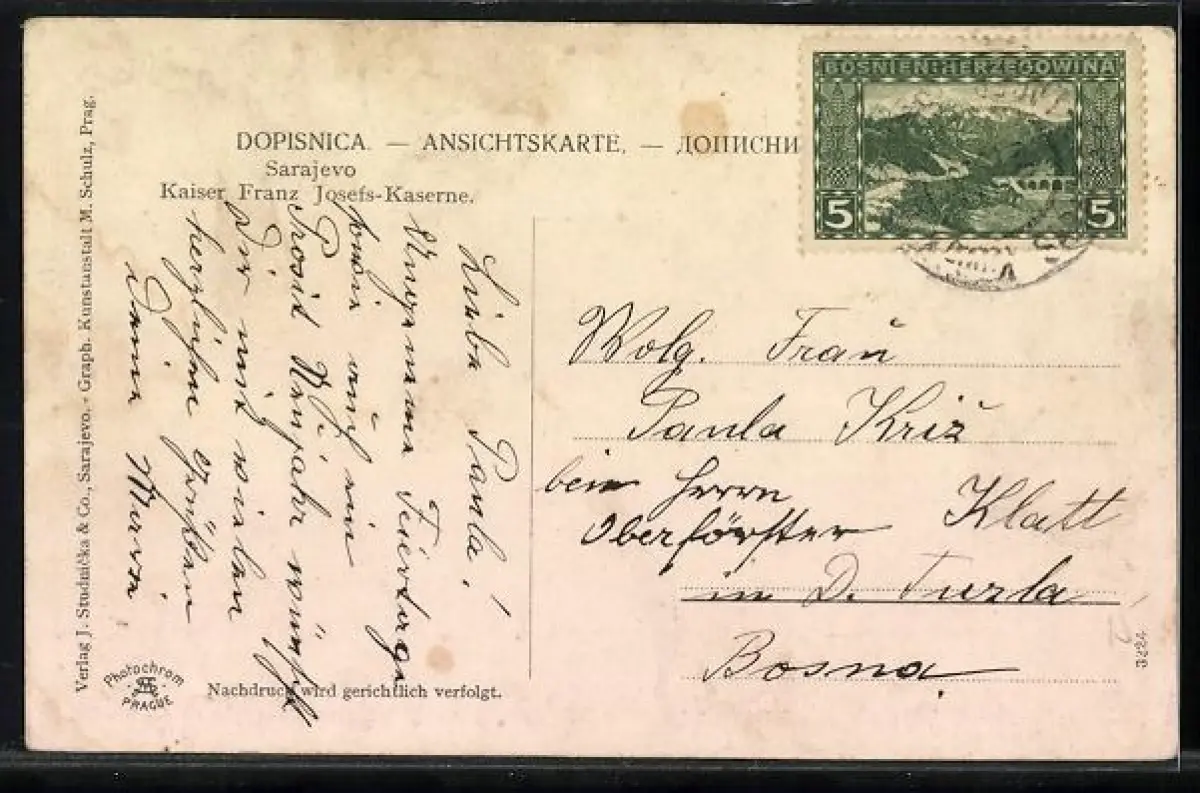 DOPISNICA. — ANSICHTSKARTE. — ДОПИСНИ
Sarajevo
Kaiser Franz Josefs-Kaserne.
BOSNIEN-HERZEGOWINA
5 5
Liebe Paula!
Angenehme Feiertage
sowie auch ein
Prosit Neujahr wünscht
Dir mit vielen
herzlichen Grüßen
Deine
Wolg. Frau
Paula Križ
beim Herrn
Oberförster Klatt
in D. Tuzla
Bosna.
Verlag J. Studnička & Co., Sarajevo. - Graph. Kunstanstalt M. Schulz, Prag.
Photochrom
PRAGUE
Nachdruck wird gerichtlich verfolgt.
3234